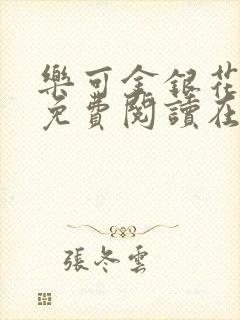 樂可金銀花
免費閱讀在
張冬雲